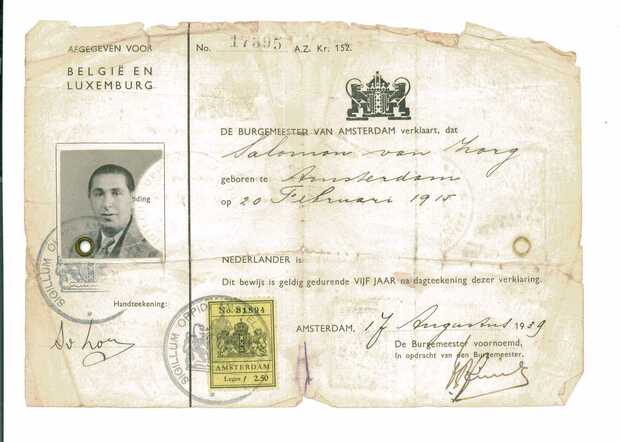 AFGEGEVEN VOOR
BELGIË EN
LUXEMBURG
No. 17895 A.Z. Kr. 152.
DE BURGEMEESTER VAN AMSTERDAM verklaart, dat
Salomon van Zorg
geboren te Amsterdam
op 20 Februari 1915
NEDERLANDER is.
Dit bewijs is geldig gedurende VIJF JAAR na dagteekening dezer verklaring.
SIGILLUM OPPID
Handteekening:
S v Zorg
SIGILLUM OPPID
No. B1894
AMSTERDAM
Leges f 2.50
AMSTERDAM, 17 Augustus 1939
De Burgemeester voornoemd,
In opdracht van den Burgemeester.